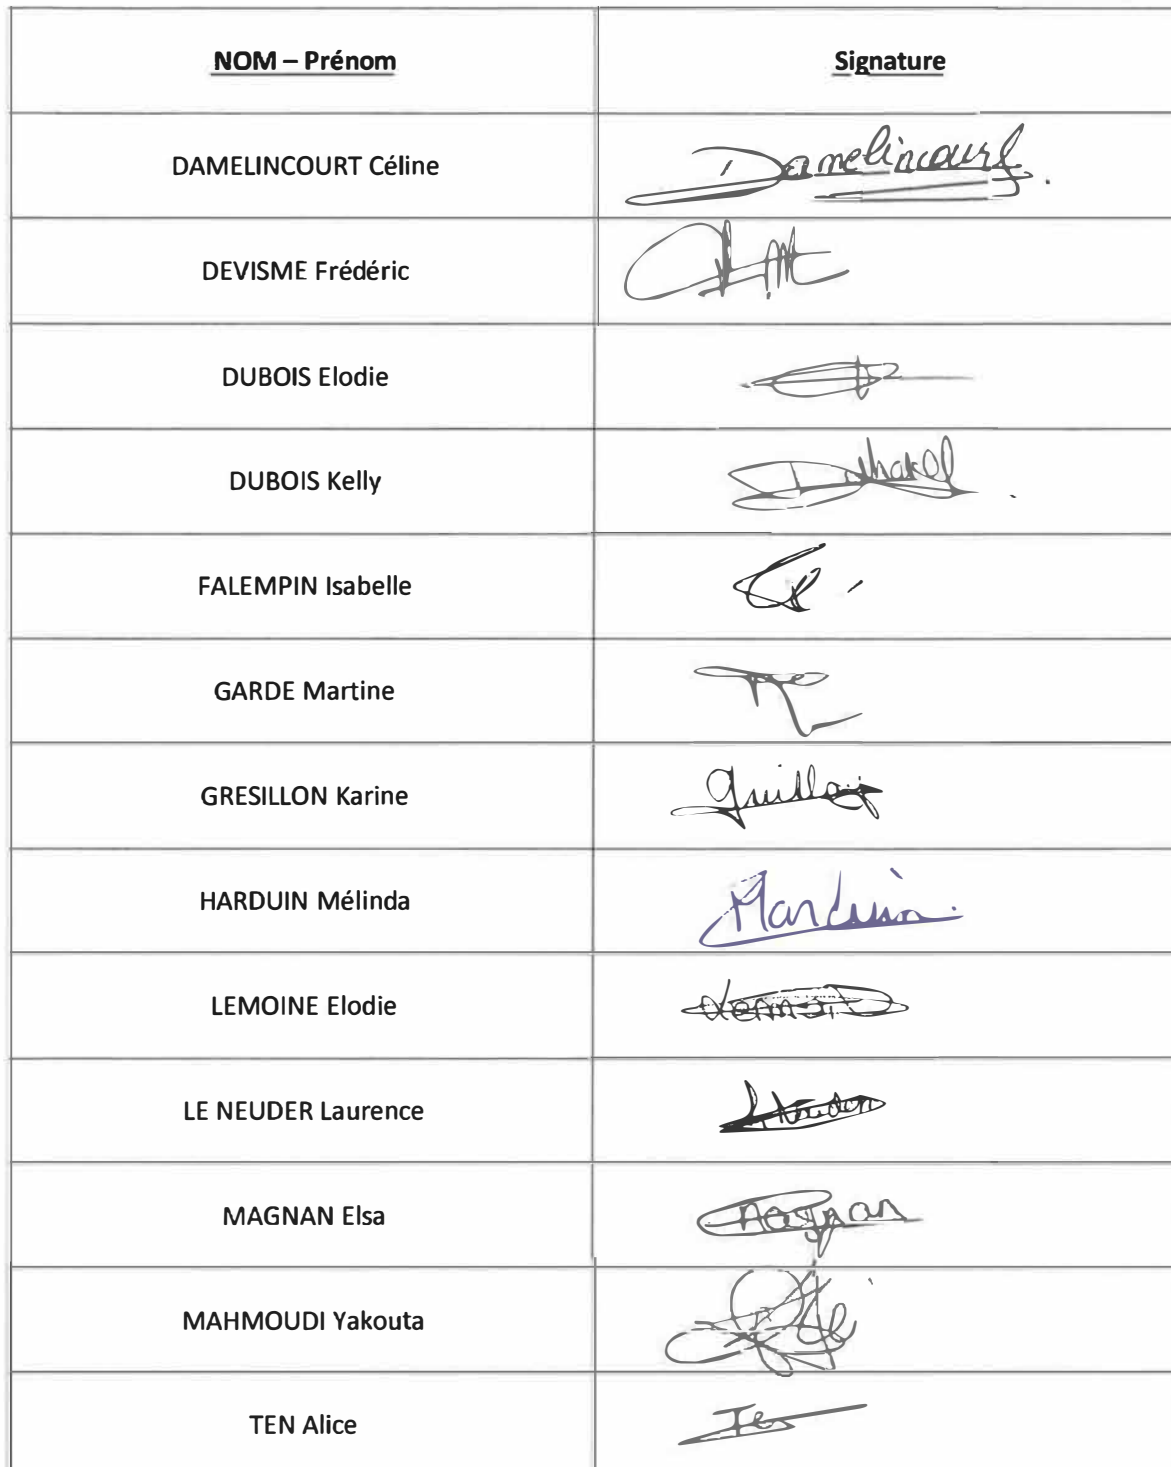 NOM – Prénom Signature
DAMELINCOURT Céline Damelincourt
DEVISME Frédéric
DUBOIS Elodie
DUBOIS Kelly
FALEMPIN Isabelle
GARDE Martine
GRESILLON Karine
HARDUIN Mélinda Harduin
LEMOINE Elodie
LE NEUDER Laurence
MAGNAN Elsa Magnan
MAHMOUDI Yakouta
TEN Alice Ten